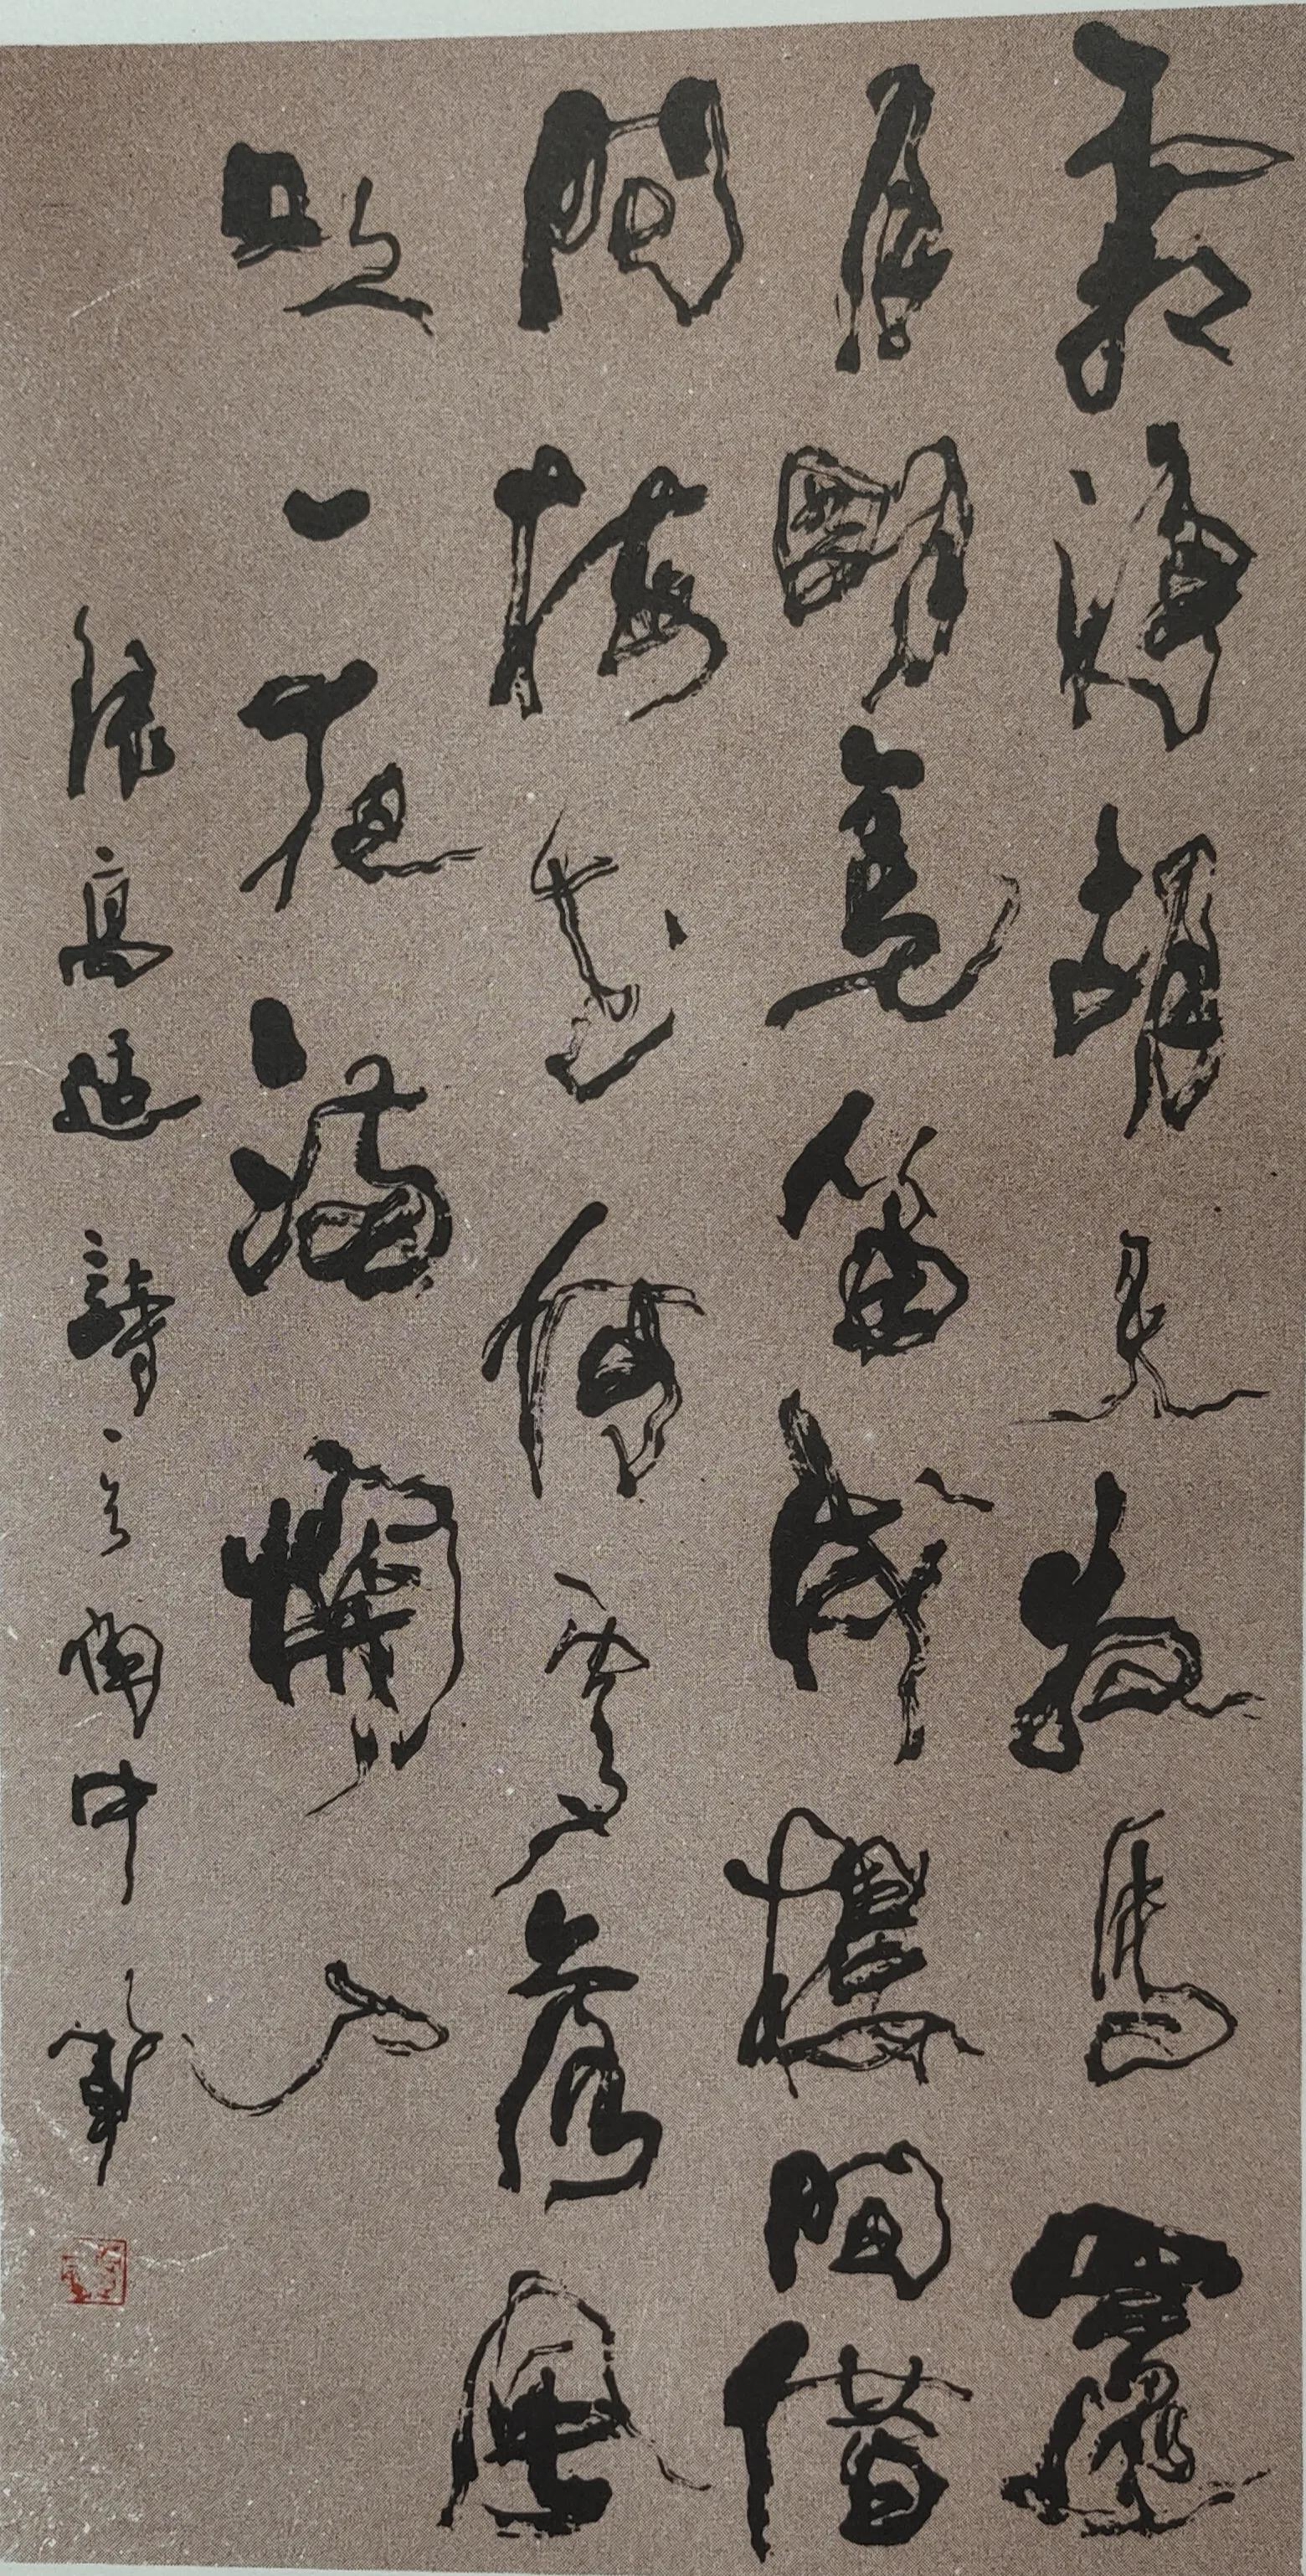 雪淨胡天牧馬還
月明羌笛戍樓間借
問梅花何處落風
吹一夜滿關山
錄高適詩